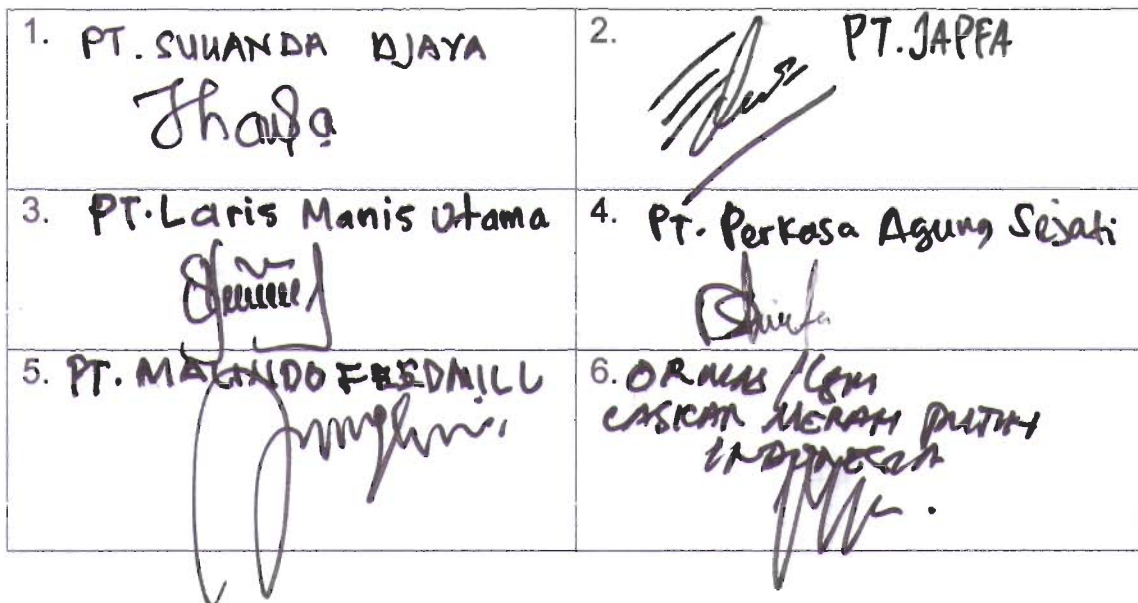 1. PT. SUKANDA DJAYA
2. PT. JAPFA
3. PT. Laris Manis Utama
4. PT. Perkasa Agung Sejati
5. PT. MALINDO FEEDMILL
6. ORMAS / LSM
LASKAR MERAH PUTIH
INDONESIA